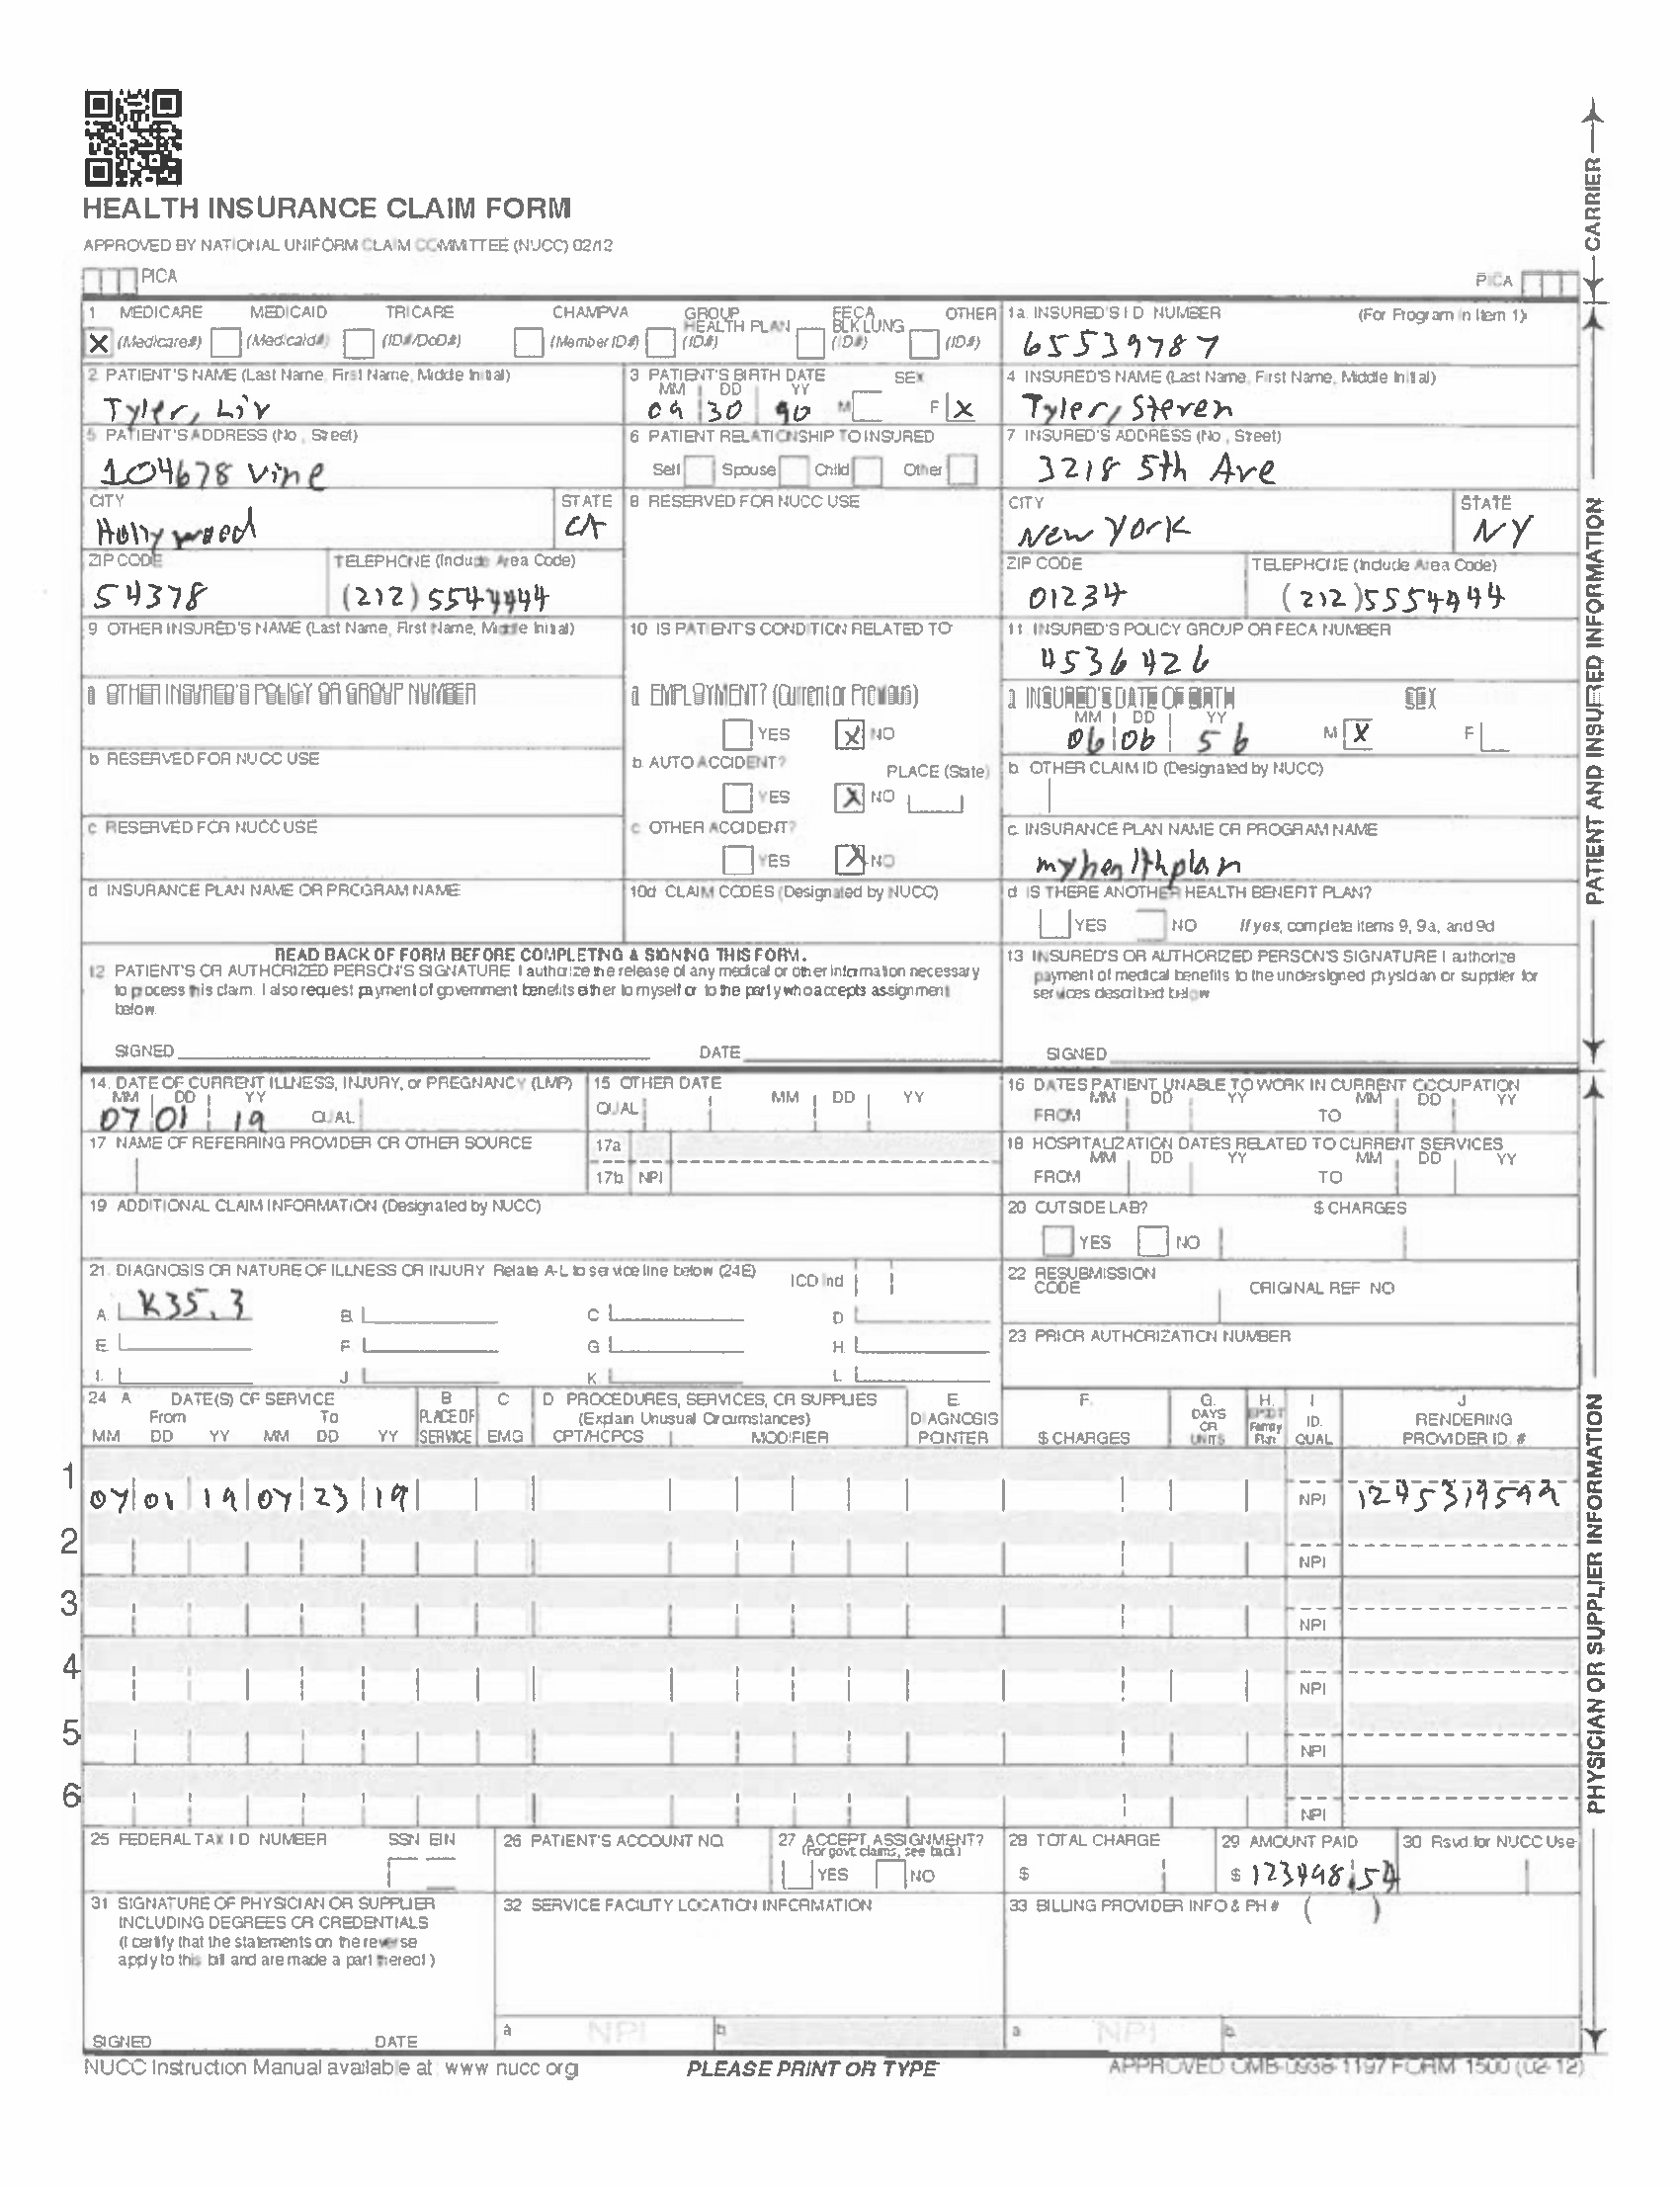 CARRIER
HEALTH INSURANCE CLAIM FORM
APPROVED BY NATIONAL UNIFORM CLAIM COMMITTEE (NUCC) 02/12
PICA PICA
1 MEDICARE MEDICAID TRICARE CHAMPVA GROUP HEALTH PLAN FECA BLK LUNG OTHER
X (Medicare#) (Medicaid#) (ID#/DoD#) (Member ID#) (ID#) (ID#) (ID#)
1a. INSURED'S I D NUMBER (For Program in Item 1)
65539787
2 PATIENT'S NAME (Last Name, First Name, Middle Initial)
Tyler, Liv
3 PATIENT'S BIRTH DATE SEX
MM DD YY
09 30 90 M F X
4 INSURED'S NAME (Last Name, First Name, Middle Initial)
Tyler, Steven
5 PATIENT'S ADDRESS (No , Street)
104678 Vine
6 PATIENT RELATIONSHIP TO INSURED
Self Spouse Child Other
7 INSURED'S ADDRESS (No , Street)
3218 5th Ave
CITY STATE
Hollywood CA
8 RESERVED FOR NUCC USE
CITY STATE
New York NY
ZIP CODE TELEPHONE (Include Area Code)
54378 (212) 5544444
ZIP CODE TELEPHONE (Include Area Code)
01234 (212) 5554444
9 OTHER INSURED'S NAME (Last Name, First Name, Middle Initial)
10 IS PATIENT'S CONDITION RELATED TO
11. INSURED'S POLICY GROUP OR FECA NUMBER
4536426
a OTHER INSURED'S POLICY OR GROUP NUMBER
a EMPLOYMENT? (Current or Previous)
YES X NO
a INSURED'S DATE OF BIRTH SEX
MM DD YY
06 06 56 M X F
b RESERVED FOR NUCC USE
b AUTO ACCIDENT? PLACE (State)
YES X NO
b OTHER CLAIM ID (Designated by NUCC)
c RESERVED FOR NUCC USE
c OTHER ACCIDENT?
YES X NO
c. INSURANCE PLAN NAME OR PROGRAM NAME
myhealthplan
d INSURANCE PLAN NAME OR PROGRAM NAME
10d CLAIM CODES (Designated by NUCC)
d IS THERE ANOTHER HEALTH BENEFIT PLAN?
YES NO If yes, complete items 9, 9a, and 9d
PATIENT AND INSURED INFORMATION
READ BACK OF FORM BEFORE COMPLETING & SIGNING THIS FORM.
12 PATIENT'S OR AUTHORIZED PERSON'S SIGNATURE I authorize the release of any medical or other information necessary
to process this claim. I also request payment of government benefits either to myself or to the party who accepts assignment
below
SIGNED DATE
13 INSURED'S OR AUTHORIZED PERSON'S SIGNATURE I authorize
payment of medical benefits to the undersigned physician or supplier for
services described below
SIGNED
14. DATE OF CURRENT ILLNESS, INJURY, or PREGNANCY (LMP)
MM DD YY
07 01 19 QUAL
15 OTHER DATE
QUAL MM DD YY
16 DATES PATIENT UNABLE TO WORK IN CURRENT OCCUPATION
MM DD YY MM DD YY
FROM TO
17 NAME OF REFERRING PROVIDER OR OTHER SOURCE
17a
17b NPI
18 HOSPITALIZATION DATES RELATED TO CURRENT SERVICES
MM DD YY MM DD YY
FROM TO
19 ADDITIONAL CLAIM INFORMATION (Designated by NUCC)
20 OUTSIDE LAB? $ CHARGES
YES NO
21. DIAGNOSIS OR NATURE OF ILLNESS OR INJURY Relate A-L to service line below (24E) ICD Ind
A. K35.3 B. C D
E. F. G H.
I. J K L
22 RESUBMISSION CODE ORIGINAL REF NO
23 PRIOR AUTHORIZATION NUMBER
24 A DATE(S) OF SERVICE B C D PROCEDURES, SERVICES, OR SUPPLIES E. F. G. H. I J
From To PLACE OF (Explain Unusual Circumstances) DIAGNOSIS DAYS OR Family ID. RENDERING
MM DD YY MM DD YY SERVICE EMG CPT/HCPCS MODIFIER POINTER $ CHARGES UNITS Plan QUAL PROVIDER ID. #
1 07 01 19 07 23 19 NPI
2 NPI
3 NPI
4 NPI
5 NPI
6 NPI
PHYSICIAN OR SUPPLIER INFORMATION
25 FEDERAL TAX I D NUMBER SSN EIN
26 PATIENT'S ACCOUNT NO.
27 ACCEPT ASSIGNMENT?
(For govt. claims, see back)
YES NO
28 TOTAL CHARGE
$
29 AMOUNT PAID
$ 123498.54
30 Rsvd for NUCC Use
31 SIGNATURE OF PHYSICIAN OR SUPPLIER
INCLUDING DEGREES OR CREDENTIALS
(I certify that the statements on the reverse
apply to this bill and are made a part thereof )
SIGNED DATE
32 SERVICE FACILITY LOCATION INFORMATION
a NPI b
33 BILLING PROVIDER INFO & PH # ( )
a NPI b
NUCC Instruction Manual available at www nucc org
PLEASE PRINT OR TYPE
APPROVED OMB-0938-1197 FORM 1500 (02-12)